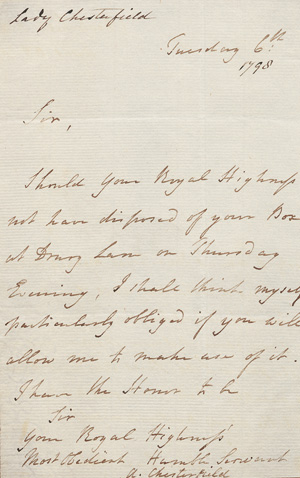 Lady Chesterfield
Tuesday 6th
1798
Sir,
Should Your Royal Highness
not have disposed of your Box
at Drury Lane on Thursday
Evening, I shall think myself
particularly obliged if you will
allow me to make use of it.
I have the Honor to be
Sir
Your Royal Highness's
Most Obedient Humble Servant
A. Chesterfield